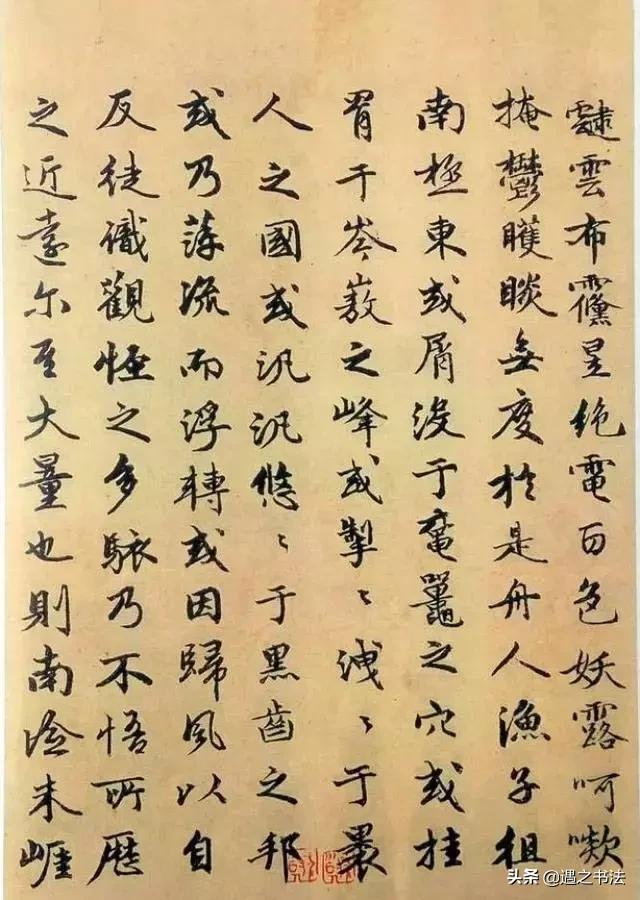 靆雲布靃昱绝電百色妖露呵嗽
掩鬱矆睒無度於是舟人漁子徂
南極東或屑沒于黿鼉之穴或挂
罥于岑嶅之峰或掣〻洩〻于裸
人之國或汎汎悠〻于黑齒之邦
或乃萍流而浮轉或因歸風以自
反徒識觀恠之多駭乃不悟所歷
之近遠尔至大量也則南澰朱崕
头条 @遇之书法